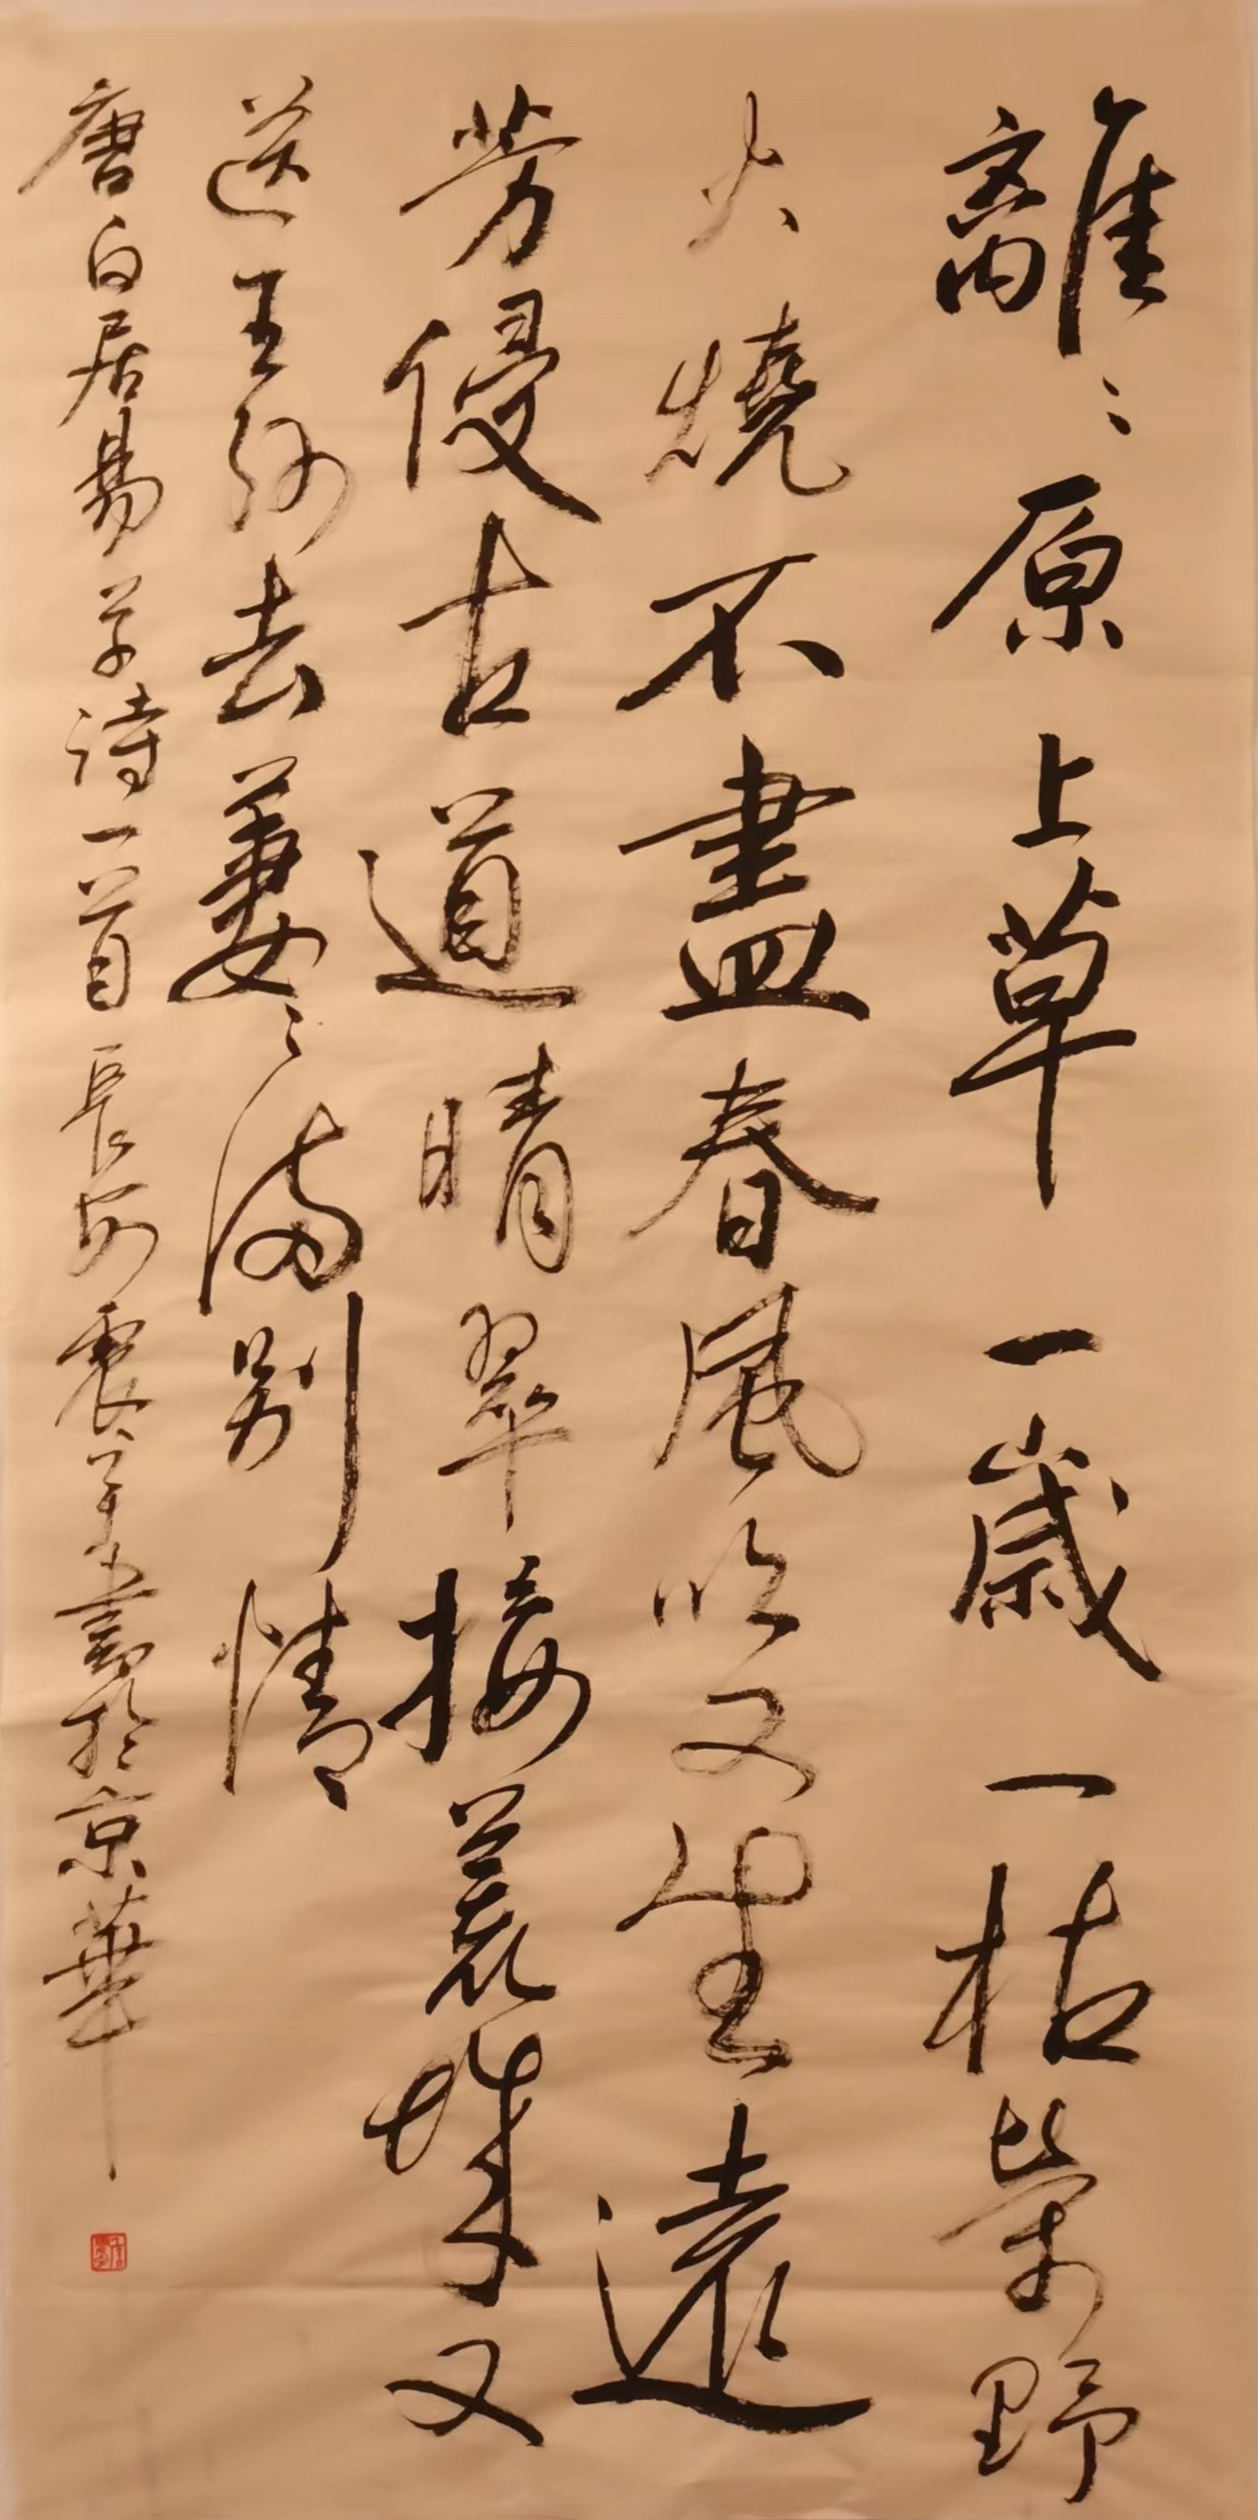 離〻原上草一歲一枯榮野
火燒不盡春風吹又生遠
芳侵古道晴翠接荒城又
送王孫去萋〻滿別情
唐白居易草詩一首長安震美書於京華